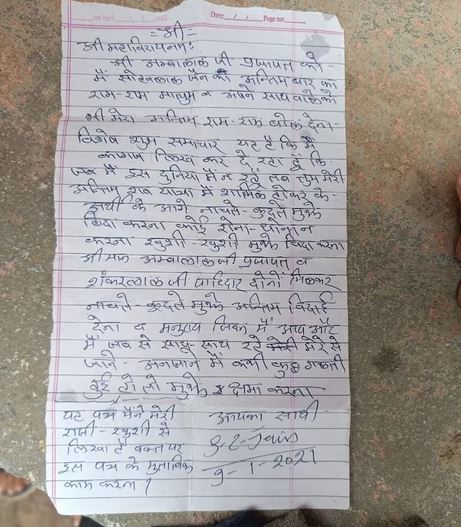 Date: / / Page no:
= श्री =
श्री महाविरायनमः
श्री अम्बालाल जी प्रजापत को
मैं सोहनलाल जैन का अन्तिम बार का
राम-राम मालुम व अपने साथ वालो को
भी मेरा अन्तिम राम-राम बोल देना-
विशेष शुभ समाचार यह है कि मैं
कागज लिख कर दे रहा हूँ कि
जब मैं इस दुनिया मैं न रहूँ तब तुम मेरी
अन्तिम शव यात्रा मैं शामिल होकर के-
अर्थी के आगे नाचते-कुदते मुझे
बिदा करना कोई रोना-धोना न
करना खुशी-खुशी मुझे बिदा करना
श्रीमान अम्बालालजी प्रजापत व
शंकरलाल जी पाटिदार दोनों मिलकर
नाचते-कुदते मुझे अन्तिम बिदाई
देना व मनुष्य जिवन मैं आप और
मैं जब से साथ-साथ रहे मेरे से
जाने-अनजान में कभी कुछ गलती
हुई हो तो मुझे क्षमा करना
यह पत्र मैंने मेरी
राजी-खुशी से
लिखा है वक्त पर
इस पत्र के मुताबिक
काम करना /
आपका साथी
S-L-Jain
9-1-2021